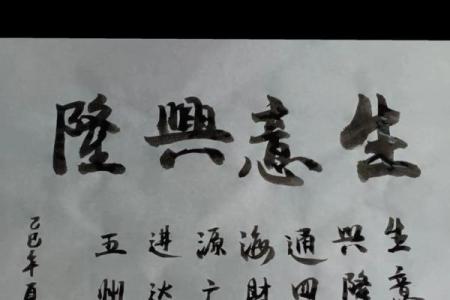 生意興隆
生意
興隆
通四
海财
源广
进达
五州
乙巳年夏